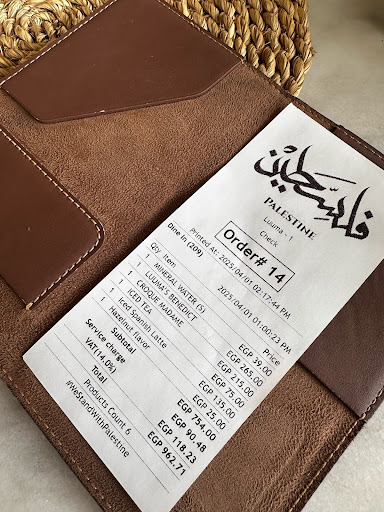 فلسطين
PALESTINE
Luuma - 1
Check
Order# 14
Printed At: 2025/04/01 02:17:44 PM
Dine In (209) 2025/04/01 01:00:23 PM
Qty Item Price
1 MINERAL WATER (S) EGP 39.00
1 LUUMA'S BENEDICT EGP 265.00
1 CROQUE MADAME EGP 215.00
1 ICED TEA EGP 75.00
1 Iced Spanish Latte EGP 135.00
1 Hazelnut flavor EGP 25.00
Subtotal EGP 754.00
Service charge EGP 90.48
VAT(14.0%) EGP 118.23
Total EGP 962.71
Products Count 6
#WeStandWithPalestine